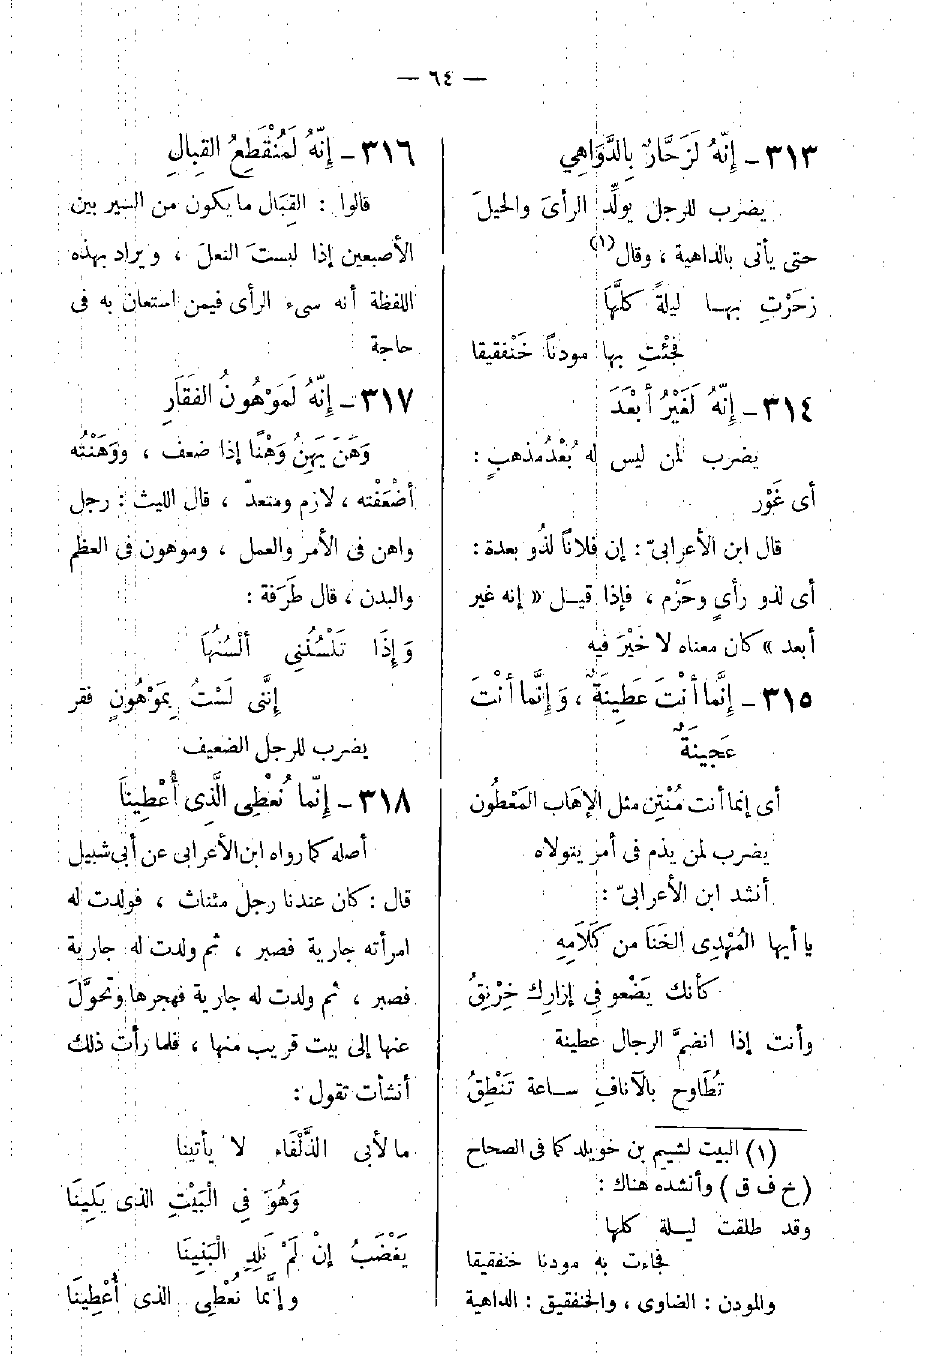 — ٦٤ —
٣١٣ - إِنَّهُ لَزَحَّارٌ بِالدَّوَاهِي
يضرب للرجل يولِّد الرأىَ والحيلَ
حتى يأتى بالداهية ، وقال(١)
زَحَرْتِ بهـا ليلةً كلَّهَا
فَجِئْتِ بها مودناً خَنْفَقيقا
٣١٤ - إِنَّهُ لَغَيْرُ أَبْعَدَ
يضرب لمن ليس له بُعْدُ مذهبٍ :
أى غَوْر
قال ابن الأعرابىّ : إن فلاناً لذُو بعدة :
أى لذو رأىٍ وحَزْم ، فإذا قيـل « إنه غير
أبعد » كان معناه لا خَيْرَ فيه
٣١٥ - إِنَّمَا أَنْتَ عَطِينَةٌ ، وَإِنَّمَا أَنْتَ
عَجِينَةٌ
أى إنما أنت مُنْتِن مثل الإهَاب المَعْطُون
يضرب لمن يذم فى أمر يتولاه
أنشد ابن الأعرابىّ :
يا أيها المُهْدِى الخَنَا من كَلَامِهِ
كأنك يَضْعو فِي إزارِك خِرْنِقُ
وأنت إذا انضمَّ الرجال عطينة
تُطَاوح بالآنافِ سـاعة تَنْطِقُ
(١) البيت لشييم بن خويلد كما فى الصحاح
(خ ف ق ) وأنشده هناك :
وقد طلقت ليـلة كلها
فجاءت به مودنا خنفقيقا
والمودن : الضاوى ، والخنفقيق : الداهية
٣١٦ - إِنَّهُ لَمُنْقَطِعُ القِبالِ
قالوا : القِبَال ما يكون من السير بين
الأصبعين إذا لبستَ النعلَ ، ويراد بهذه
اللفظة أنه سىء الرأى فيمن استعان به فى
حاجة
٣١٧ - إِنَّهُ لَمَوْهُونُ الفَقَارِ
وَهَنَ يَهِنُ وَهْنًا إذا ضعف ، ووَهَنْتُه
أضْعَفْته ، لازم ومتعدّ ، قال الليث : رجل
واهن فى الأمر والعمل ، وموهون فى العظم
والبدن ، قال طَرَفة :
وَإِذَا تَلْسُنُنِي أَلْسُنُهَا
إِنَّنِى لَسْتُ بِمَوْهُونٍ فقر
يضرب للرجل الضعيف
٣١٨ - إِنَّمَا نُعْطِى الَّذِى أُعْطِينَا
أصله كما رواه ابن الأعرابى عن أبى شبيل
قال : كان عندنا رجل مئناث ، فولدت له
امرأته جارية فصبر ، ثم ولدت له جارية
فصبر ، ثم ولدت له جارية فهجرها وتحوَّلَ
عنها إلى بيت قريب منها ، فلما رأت ذلك
أنشأت تقول :
ما لأبى الذَّلْفَاء لا يأتينا
وَهُوَ فِي الْبَيْتِ الذى يَلِينَا
يَغْضَبُ إِنْ لَمْ نَلِدِ الْبَنِينَا
وإنَّما نُعْطِى الذى أُعْطِينَا